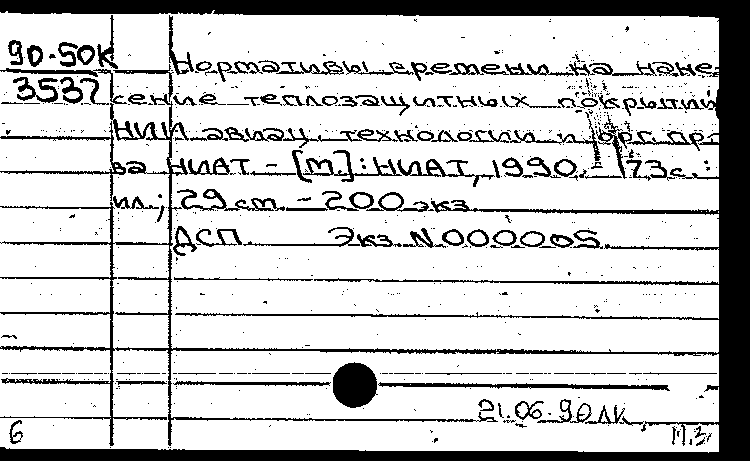 90-50К Нормативы времени на нане-
3537 сение теплозащитных покрытий
НИИ авиац. технологии и орг. пр-
ва НИАТ. - [М.]: НИАТ, 1990. - 173с.:
ил.; 29 см. - 200 экз.
ДСП. Экз. N 000005.
21.06.90 ЛК
6 М.З.